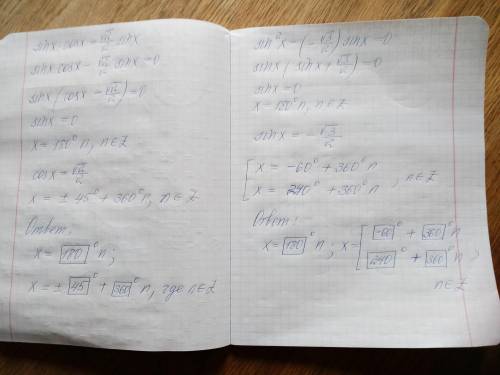 sinx · cosx = √2/2 sinx
sinx cosx − √2/2 sinx = 0
sinx (cosx − √2/2) = 0
sinx = 0
x = 180° n, n∈Z
cosx = √2/2
x = ± 45° + 360° n, n∈Z
Ответ:
x = 180° n;
x = ± 45° + 360° n, где n∈Z
sin²x − (−√3/2) sinx = 0
sinx (sinx + √3/2) = 0
sinx = 0
x = 180° n, n∈Z
sinx = − √3/2
[ x = −60° + 360° n
x = 240° + 360° n , n∈Z
Ответ:
x = 180° n ; x = [ −60° + 360° n
240° + 360° n ;
n∈Z